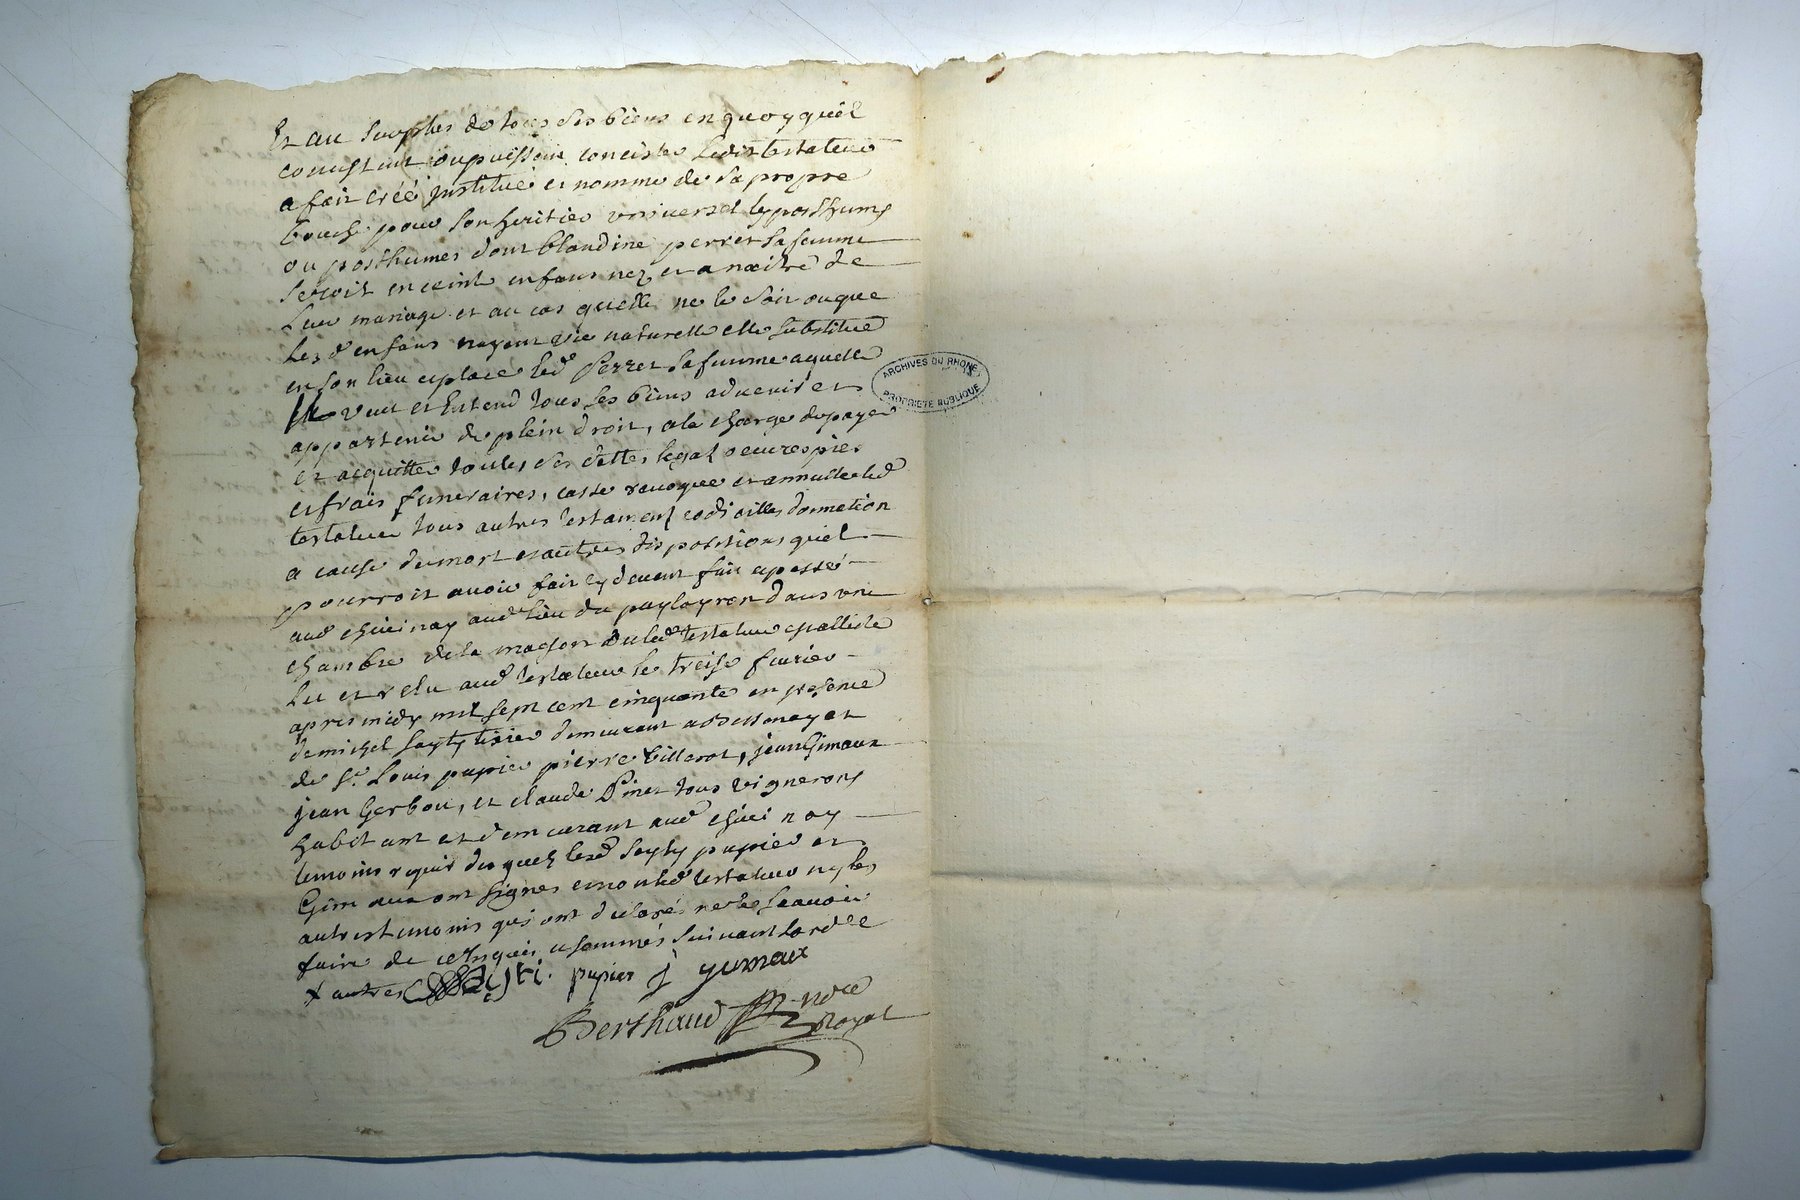 Et au surplus de tous ses biens en quoy quél
consistent ou puissent concister ledit testateur
a fait créé justitué et nommé de sa propre
bouche pour son heritier vniversel les posthume
ou posthumes dont blandine perret sa femme
seroit enceinte enfans nez et a naitre de
leur mariage et au cas quelle ne le soit ou que
les d enfans nayent vie naturelle elle substitue
en son lieu et place led Perret sa femme a quelle
il veut et Entend tous ses biens advenir et
appartenir de plein droit, a la charge de payer
et acquitter toutes ses dettes legat oeuvres pies
et frais funeraires, casse revoque et annulle led
testateur tous autres testament codicilles donnation
a cause de mort et autres dispositions quiel
pourroit avoir fait cy devent fait et passé
aud chivinay aud lieu du puylayron dans vne
chambre de la maison dud testateur
lu et relu aud testateur le treise fevrier
apres midy mil sept cent cinquante en presence
de michel sayty tixier demeurant a Bessenay et
de Sr. Louis papier pierre billerot, jean Gimaux
jean Gerbou, et claude Pinet tous vignerons
habitant et demeurant aud chivinay
temoins requis des quels lesd sayty papier et
Gimaux ont signes et non led testateur ny les
autres temoins qui ont declaré ne le scavoir
faire de ce enquis et sommés suivant lord ce
x autres papier j gymaux
Berthaud nore
Royal
ARCHIVES DU RHONE
PROPRIETE PUBLIQUE